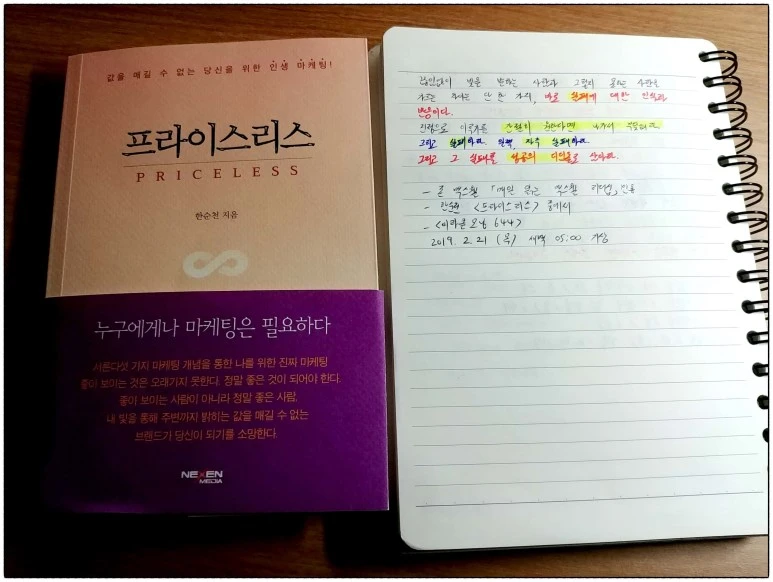 값을 매길 수 없는 당신을 위한 인생 마케팅!
프라이스리스
PRICELESS
한순천 지음
누구에게나 마케팅은 필요하다
서른다섯 가지 마케팅 개념을 통한 나를 위한 진짜 마케팅
좋아 보이는 것은 오래가지 못한다. 정말 좋은 것이 되어야 한다.
좋아 보이는 사람이 아니라 정말 좋은 사람,
내 빛을 통해 주변까지 밝히는 값을 매길 수 없는
브랜드가 당신이 되기를 소망한다.
NEXEN
MEDIA
끊임없이 빛을 발하는 사람과 그렇지 못하는 사람을
가르는 차이는 단 한 가지, 바로 실패에 대한 인식과
반응이다.
간절히 원한다면
그리고 실패하라. 일찍, 자주 실패하라.
그리고 그 실패를 성공의 디딤돌로 삼아라.
- 존 맥스웰 「매일 읽는 맥스웰 리더십」 인용
- 한순천 <프라이스리스> 중에서
- <미라클 모닝 644>
2019. 2. 21 (목) 새벽 05:00 기상